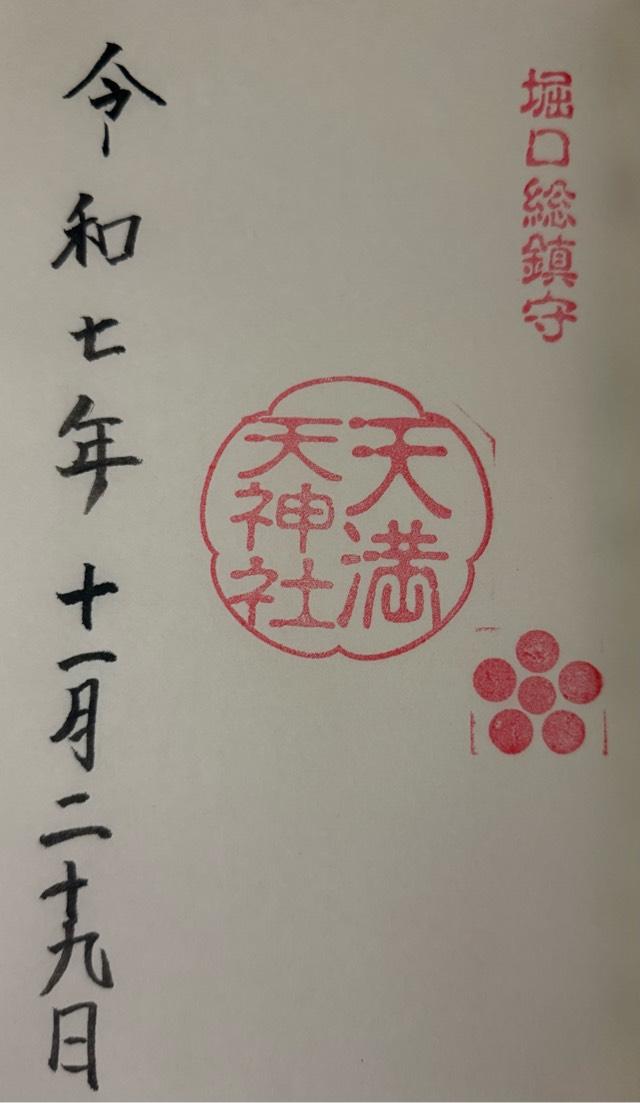 堀口総鎮守
天満
天神社
令和七年十一月二十九日